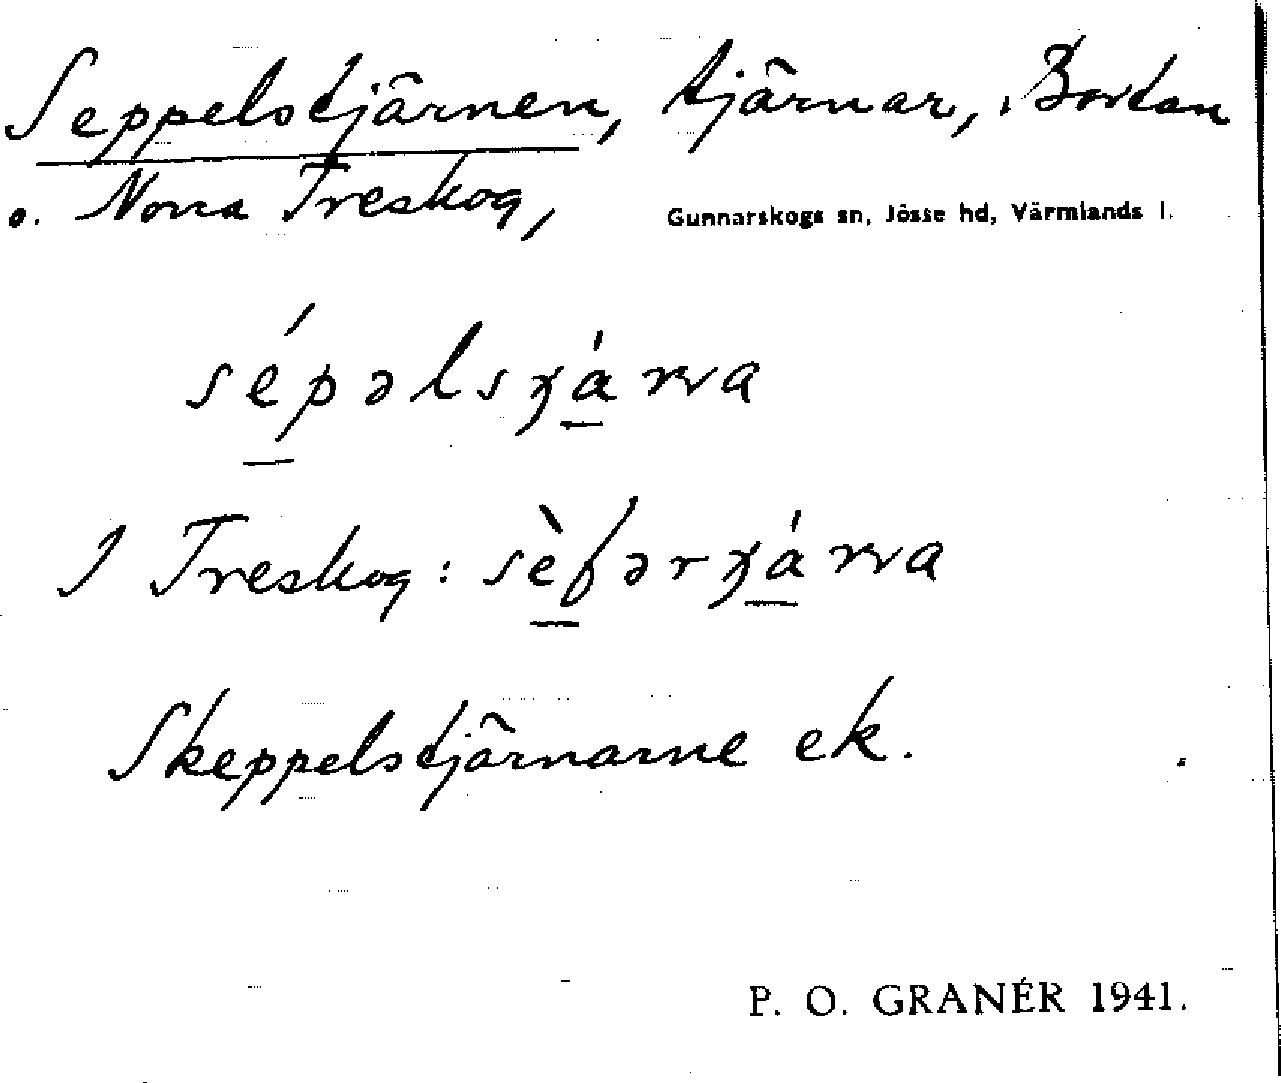 Seppelstjärnen, tjärnar, i Bortan
o. Norra Treskog, Gunnarskogs sn, Jösse hd, Värmlands l.
sépəlsχánᴠa
I Treskog: sèfərχánᴠa
Skeppelstjärnarne ek.
P. O. GRANÉR 1941.